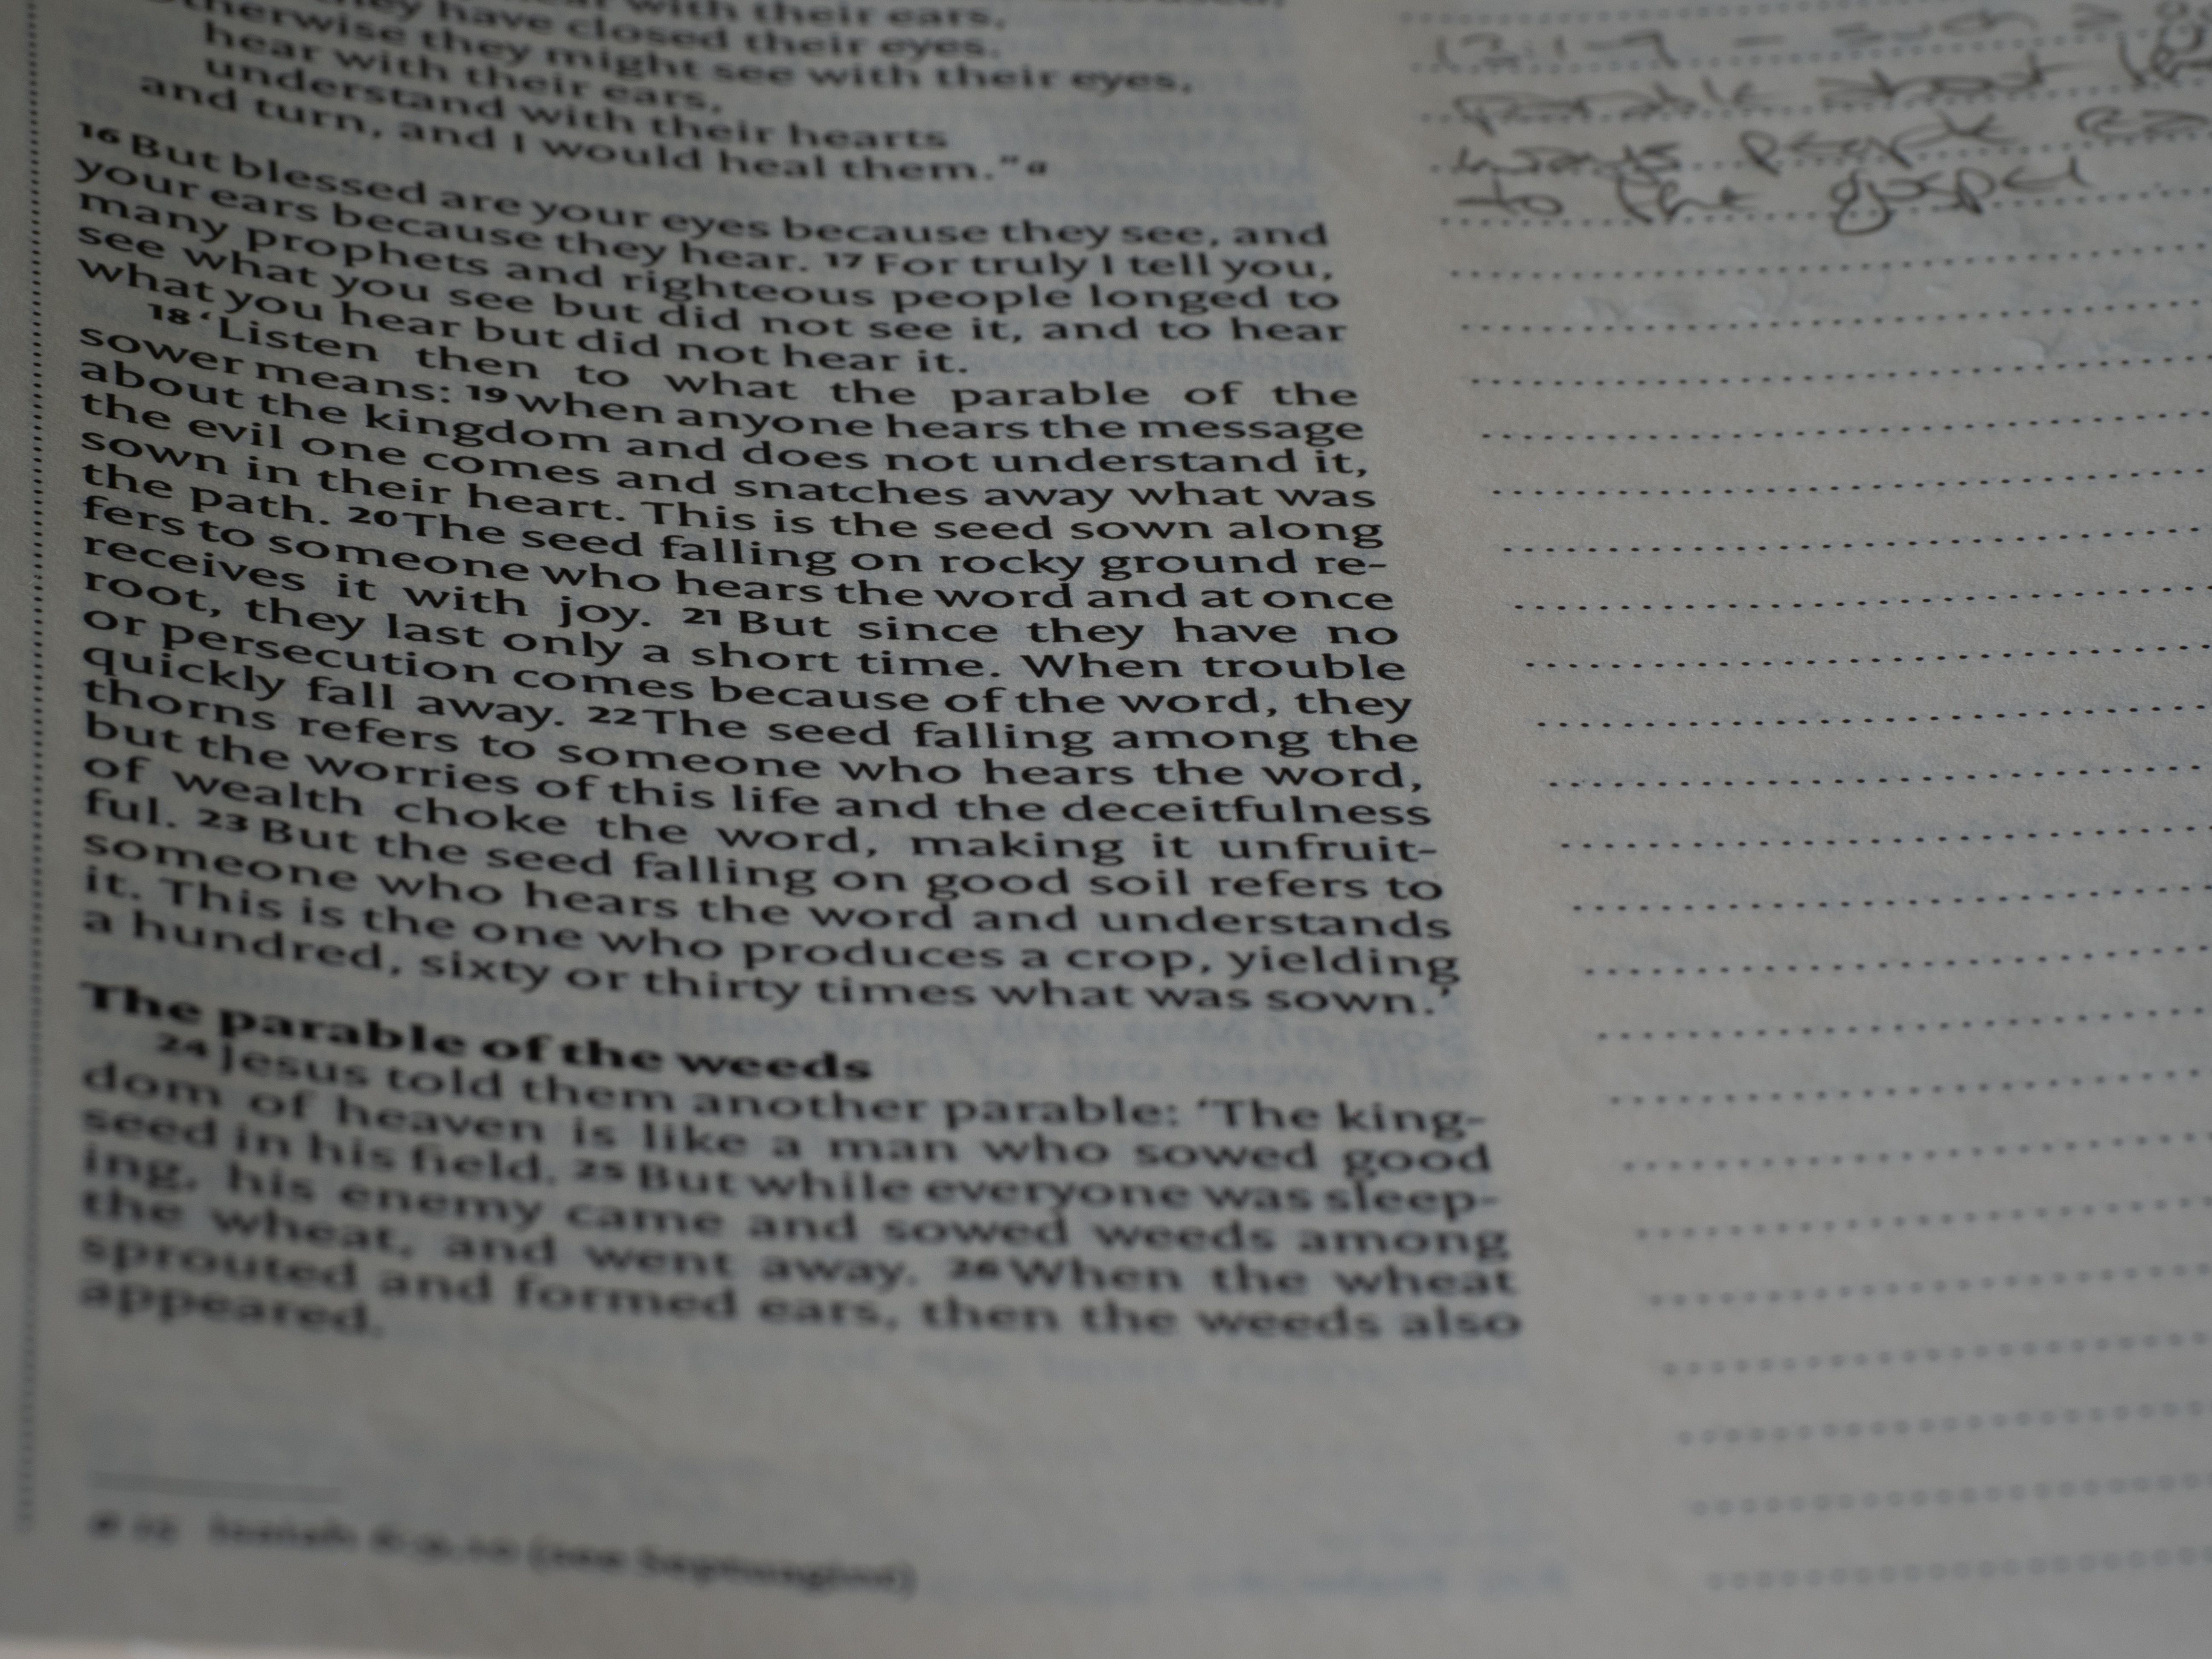 with their ears,
have closed their eyes.
they might see with their eyes,
hear with their ears,
understand with their hearts
and turn, and I would heal them.”a
16 But blessed are your eyes because they see, and
your ears because they hear. 17 For truly I tell you,
many prophets and righteous people longed to
see what you see but did not see it, and to hear
what you hear but did not hear it.
18 ‘Listen then to what the parable of the
sower means: 19 when anyone hears the message
about the kingdom and does not understand it,
the evil one comes and snatches away what was
sown in their heart. This is the seed sown along
the path. 20 The seed falling on rocky ground re-
fers to someone who hears the word and at once
receives it with joy. 21 But since they have no
root, they last only a short time. When trouble
or persecution comes because of the word, they
quickly fall away. 22 The seed falling among the
thorns refers to someone who hears the word,
but the worries of this life and the deceitfulness
of wealth choke the word, making it unfruit-
ful. 23 But the seed falling on good soil refers to
someone who hears the word and understands
it. This is the one who produces a crop, yielding
a hundred, sixty or thirty times what was sown.’
The parable of the weeds
24 Jesus told them another parable: ‘The king-
dom of heaven is like a man who sowed good
seed in his field. 25 But while everyone was sleep-
ing, his enemy came and sowed weeds among
the wheat, and went away. 26 When the wheat
sprouted and formed ears, then the weeds also
appeared.
Isaiah (see Septuagint)
parable about
people
to the gospel